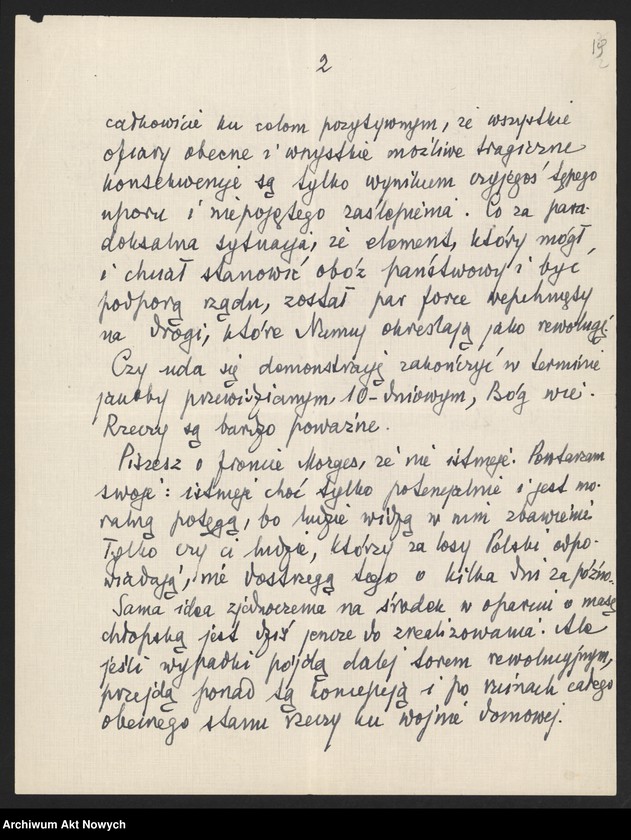 19
2
całkowicie ku celom pozytywnym, że wszystkie
ofiary obecne i wszystkie możliwe tragiczne
konsekwencje są tylko wynikiem czyjegoś tępego
uporu i niepojętego zaślepienia. Co za para-
doksalna sytuacja, że element, który mógł
i chciał stanowić obóz państwowy i być
podporą rządu, został par force wepchnięty
na drogi, które Niemcy określają jako rewolucję.
Czy uda się demonstrację zakończyć w terminie
jakoby przewidzianym, 10-dniowym, Bóg wie.
Rzeczy są bardzo poważne.
Piszesz o froncie Morges, że nie istnieje. Powtarzam
swoje: istnieje choć tylko potencjalnie i jest mo-
ralną potęgą, bo ludzie widzą w nim zbawienie
Tylko czy ci ludzie, którzy za losy Polski odpo-
wiadają, nie dostrzegą tego o kilka dni za późno.
Sama idea zjednoczenia na środek w oparciu o masę
chłopską jest dziś jeszcze do zrealizowania. Ale
jeśli wypadki pójdą dalej torem rewolucyjnym,
przejdą ponad tą koncepcją i po ruinach całego
obecnego stanu rzeczy ku wojnie domowej.
Archiwum Akt Nowych